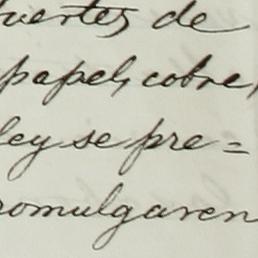 fuertes de
papel, cobre,
ley se pre=
romulgaren